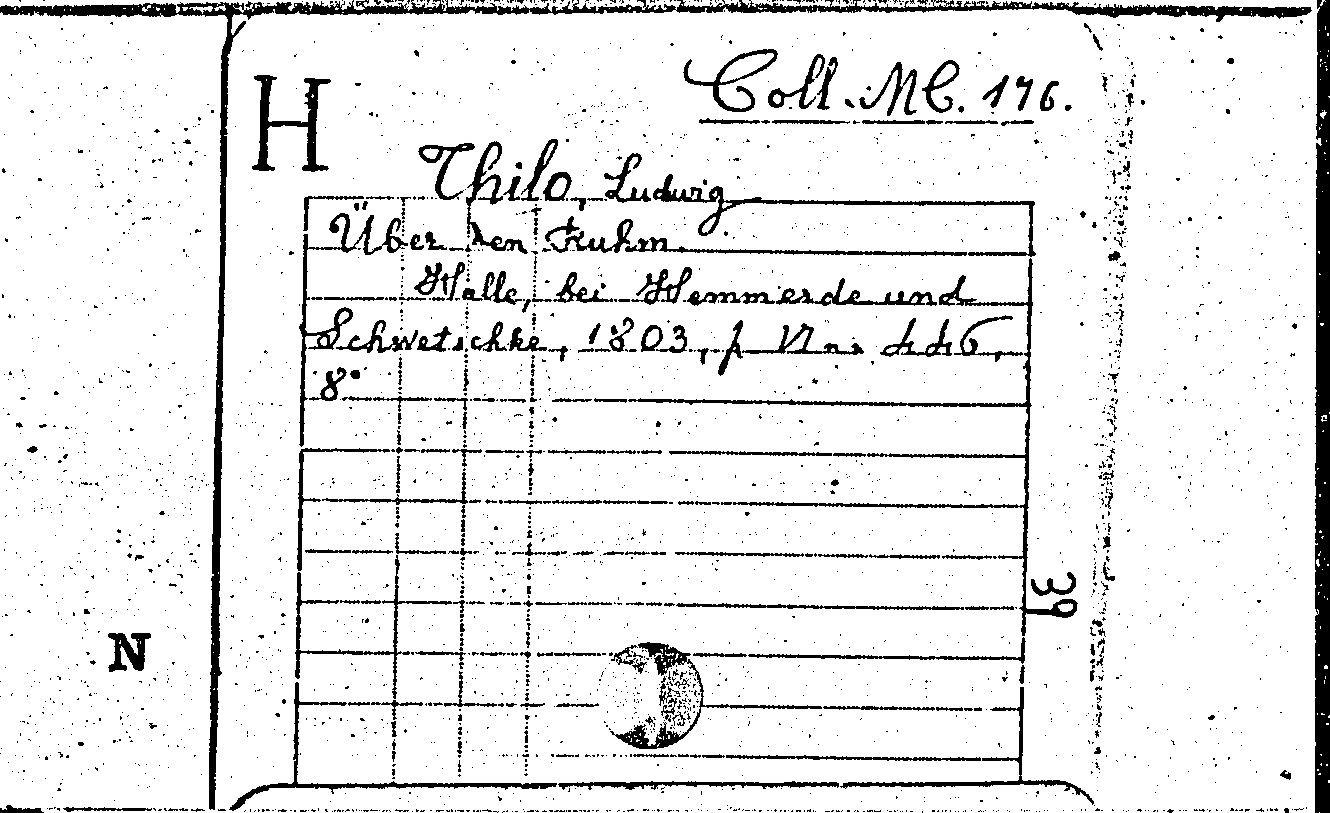 H
Coll. MC. 176.
Thilo, Ludwig
Über den Ruhm.
Halle, bei Hemmerde und
Schwetschke, 1803, p VI n.
8°
39
N